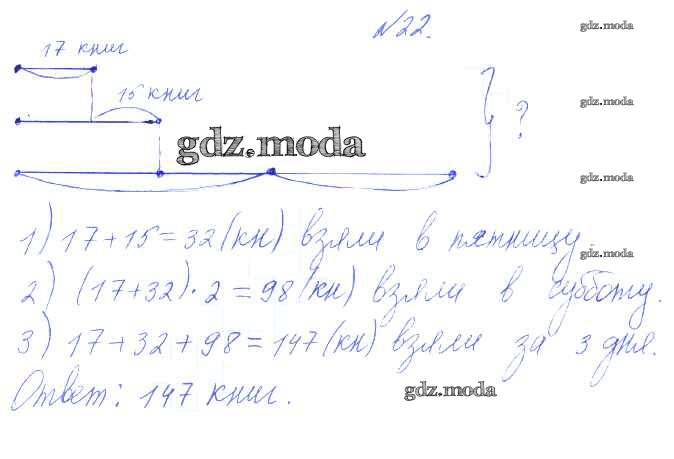 №22.
gdz.moda
17 книг
gdz.moda
15 книг
?
gdz.moda
gdz.moda
1) 17+15=32(кн) взяли в пятницу.
gdz.moda
2) (17+32)·2=98(кн) взяли в субботу.
3) 17+32+98=147(кн) взяли за 3 дня.
gdz.moda
Ответ: 147 книг.
gdz.moda